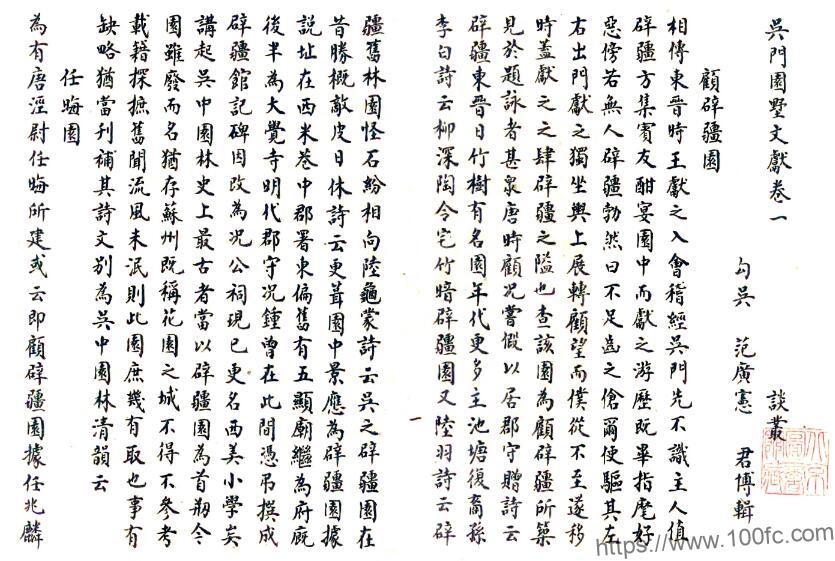 吳門園墅文獻卷一　談叢
勾吳　范廣憲　君博輯
顧辟疆園
相傳東晉時王獻之入會稽經吳門先不識主人值
辟疆方集賓友酣宴園中而獻之游歷既畢指麾好
惡傍若無人辟疆勃然曰不足齒之傖爾便驅其左
右出門獻之獨坐輿上展轉顧望而僕從不至遂移
時蓋獻之之肆辟疆之隘也查該園為顧辟疆所築
見於題詠者甚衆唐時顧況嘗假以居郡守贈詩云
辟疆東晉日竹樹有名園年代更多主池塘復裔孫
李白詩云柳深陶令宅竹暗辟疆園又陸羽詩云辟
一
疆舊林園怪石紛相向陸龜蒙詩云吳之辟疆園在
昔勝概敵皮日休詩云更葺園中景應為辟疆園據
說址在西米巷中郡署東偏舊有五顯廟繼為府廐
後半為大覺寺明代郡守況鍾曾在此間憑弔撰成
辟疆館記碑因改為況公祠現已更名西美小學矣
講起吳中園林史上最古者當以辟疆園為首刱今
園雖廢而名猶存蘇州既稱花園之城不得不參考
載籍探摭舊聞流風未泯則此園庶幾有取也事有
缺略猶當刊補其詩文別為吳中園林清韻云
任晦園
為有唐涇尉任晦所建或云即顧辟疆園據任兆麟
https://www.100fc.com